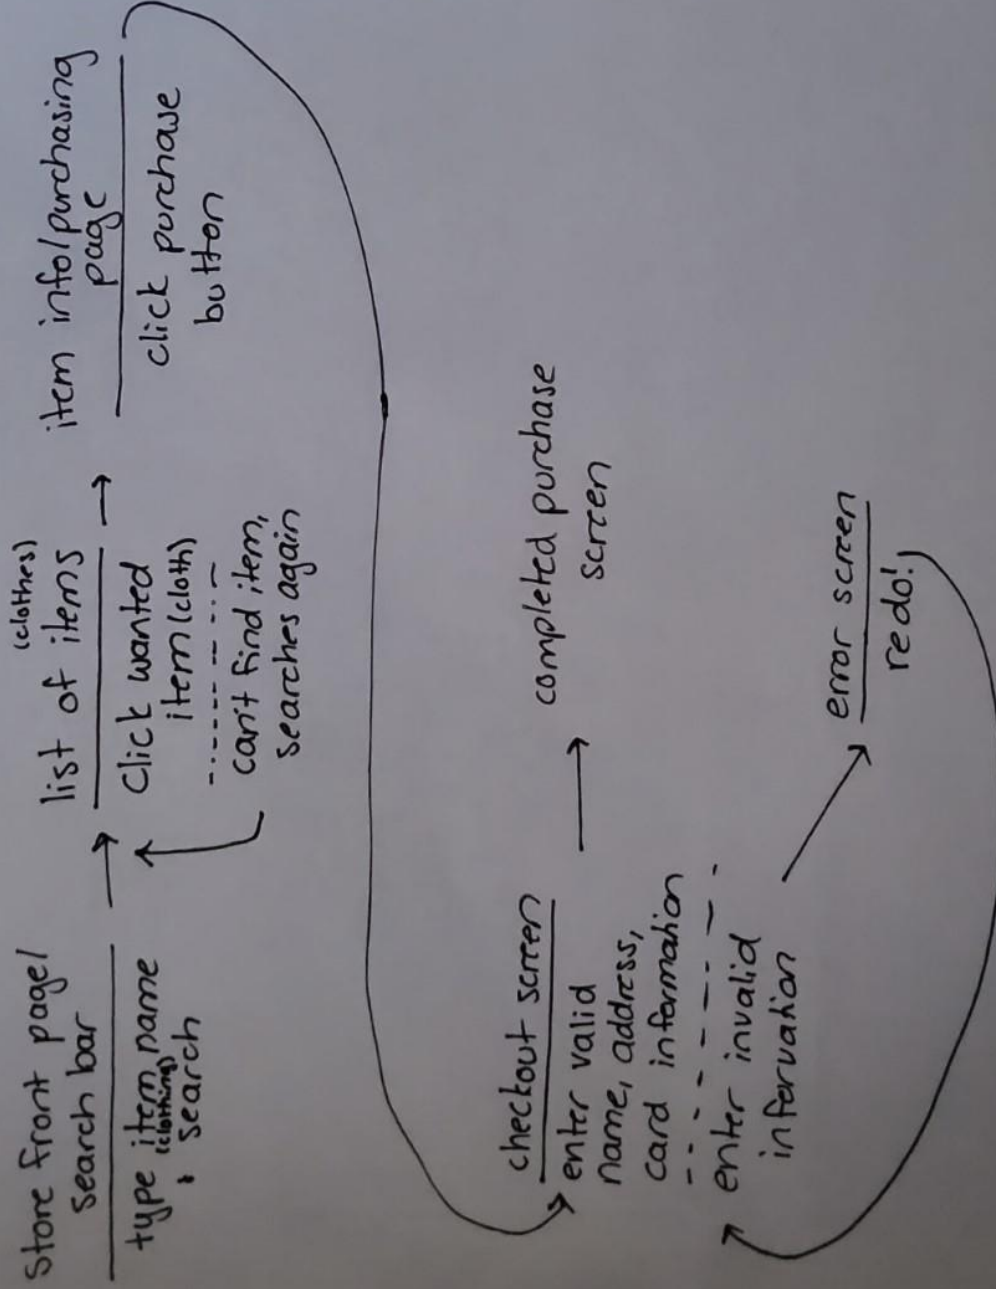 Store front page/
search bar
type item name
(clothing)
& search
(clothes)
list of items
Click wanted
item (cloth)
can't find item,
searches again
item info/purchasing
page
click purchase
button
checkout screen
enter valid
name, address,
card information
enter invalid
infor​vation
completed purchase
screen
error screen
redo!